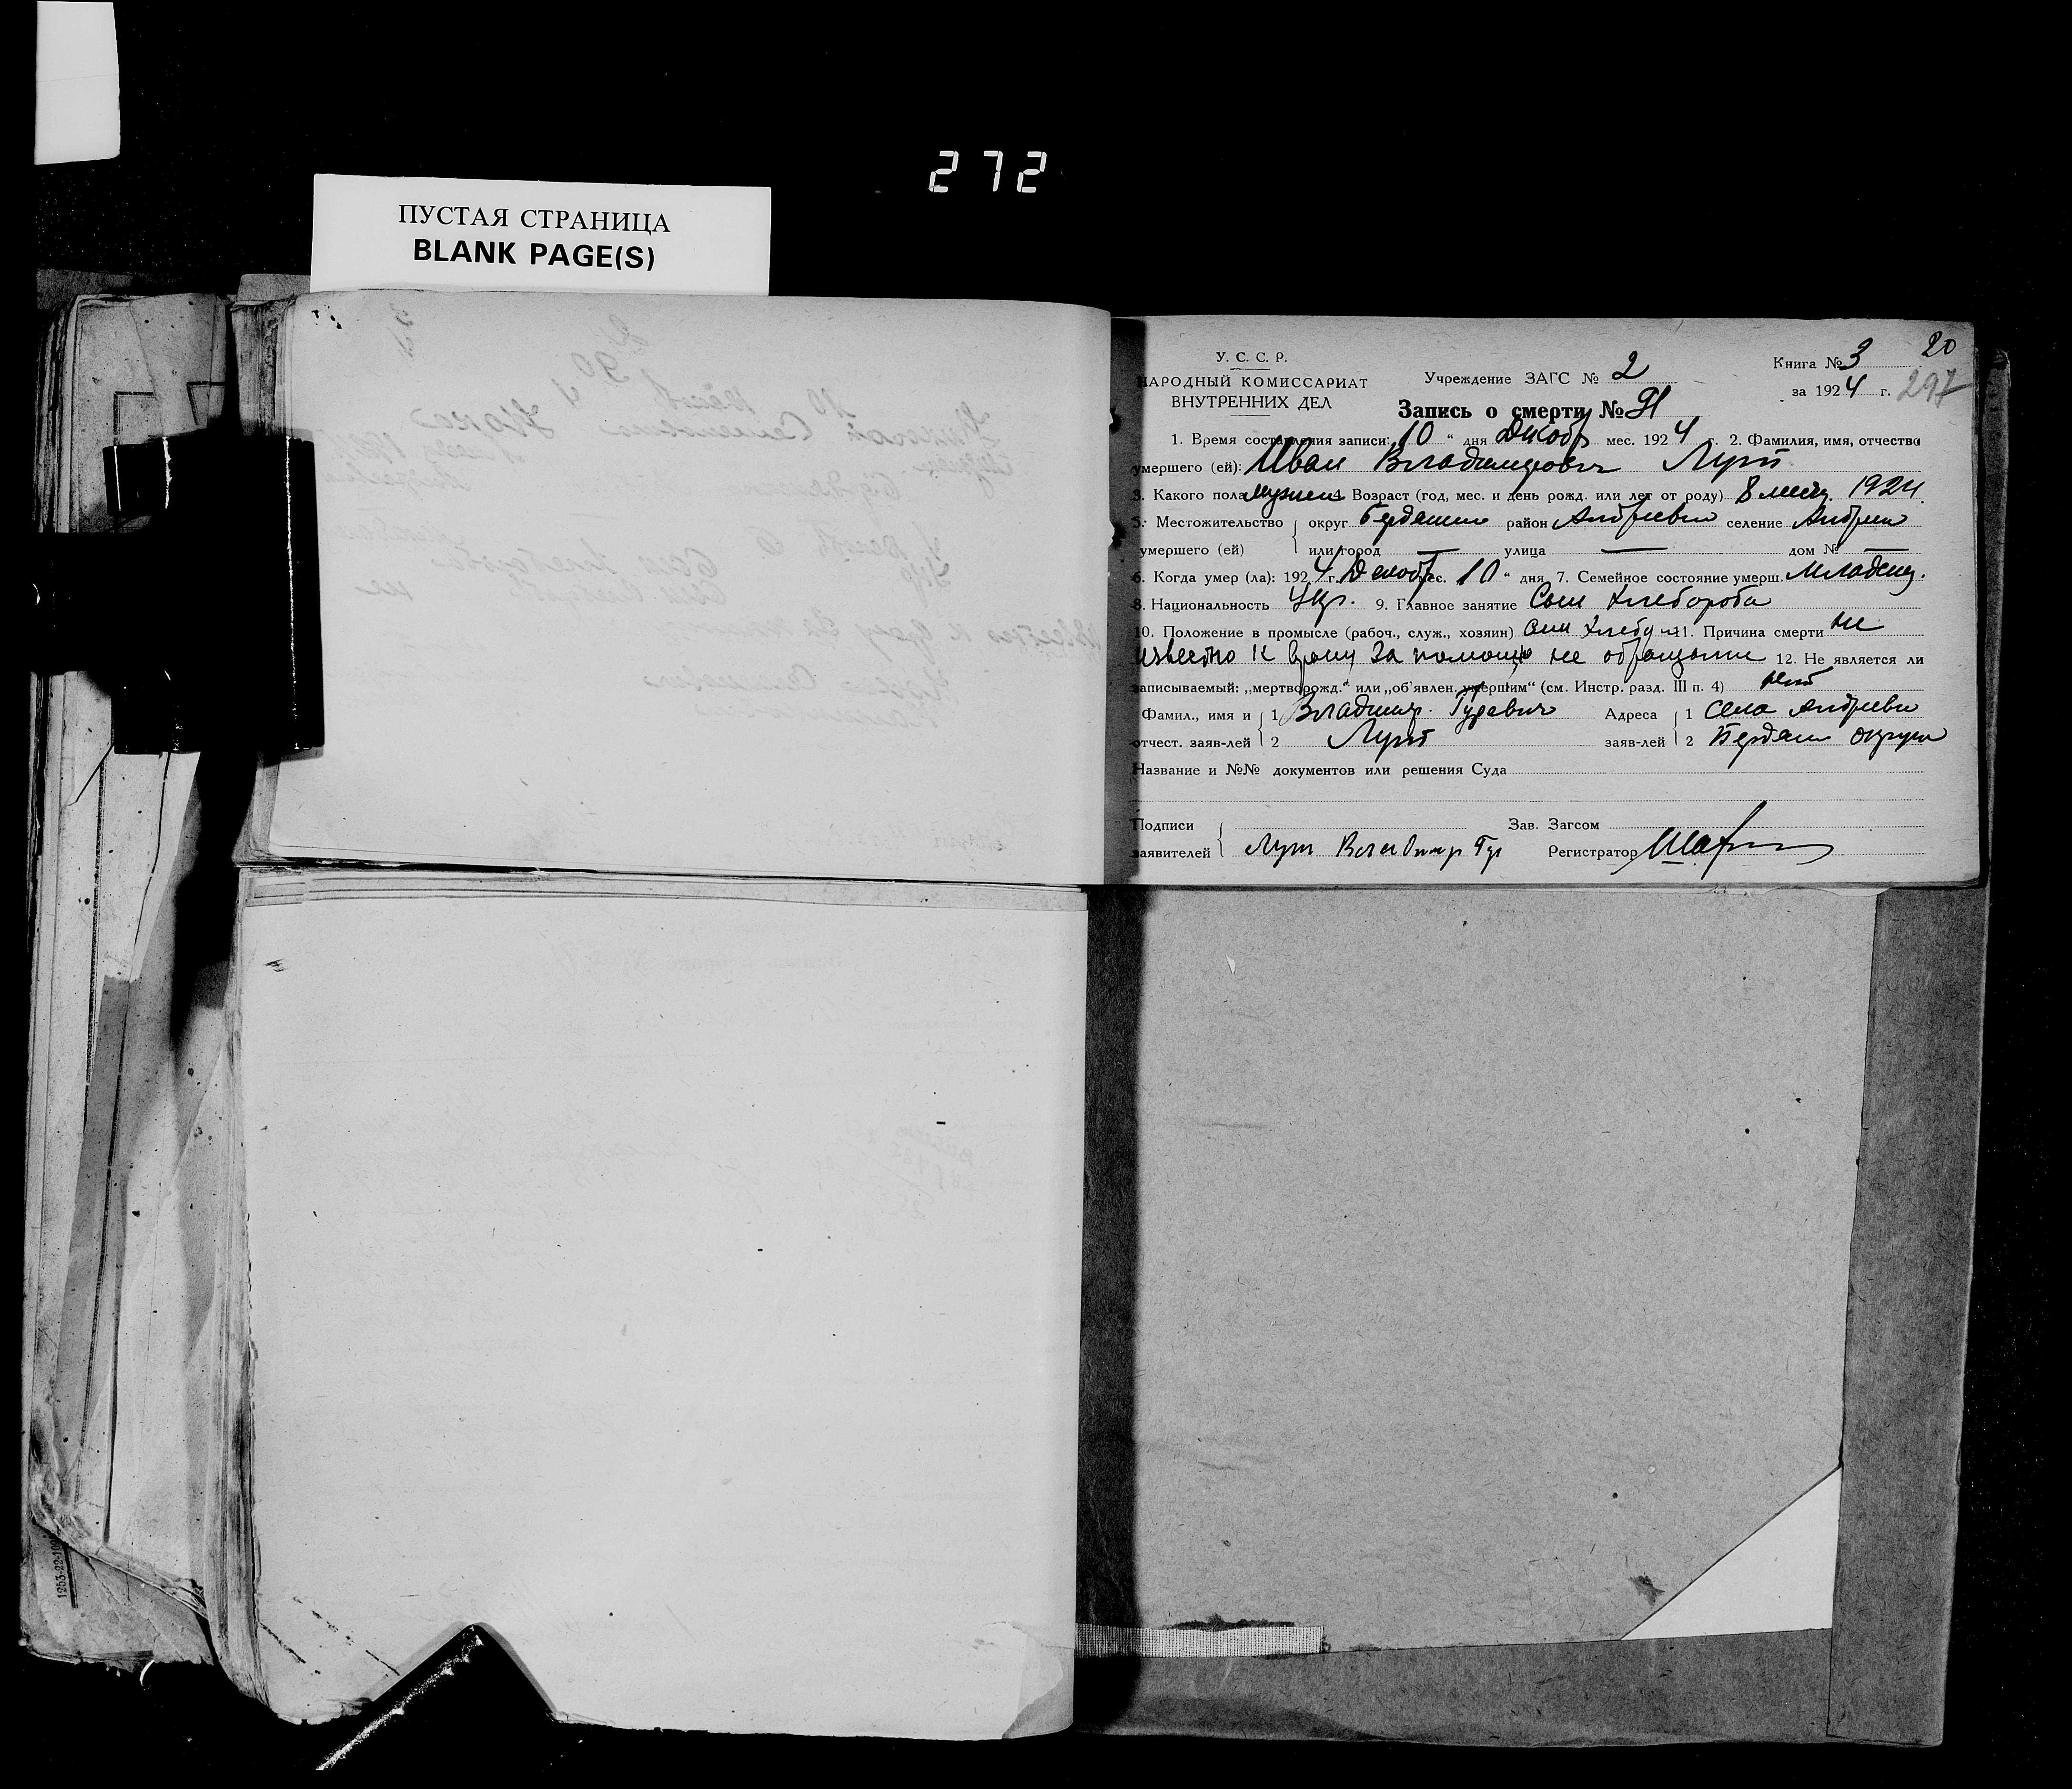 272
ПУСТАЯ СТРАНИЦА
BLANK PAGE(S)
20
У. С. С. Р.
НАРОДНЫЙ КОМИССАРИАТ
ВНУТРЕННИХ ДЕЛ
Учреждение ЗАГС № 2
Книга № 3
за 1924 г. 297
Запись о смерти № 91
1. Время составления записи: 10 " дня Декабр мес. 1924 г. 2. Фамилия, имя, отчество
умершего (ей): Иван Владимирович Лут
3. Какого пола мужск 4. Возраст (год, мес. и день рожд. или лет от роду) 8 месяц. 1924
5. Местожительство округ Бердянск район Андреевка селение Андреев
умершего (ей) или город — улица — дом № —
6. Когда умер (ла): 1924 г. Декабр мес. 10 " дня 7. Семейное состояние умерш. Младенец.
8. Национальность Укр. 9. Главное занятие Сын Хлебороба
10. Положение в промысле (рабоч., служ., хозяин) Сын Хлебо 11. Причина смерти не
известно к врачу за помощью не обращались 12. Не является ли
записываемый: „мертворожд." или „об'явлен. умершим" (см. Инстр. разд. III п. 4) нет
Фамил., имя и 1 Владимир Адреса 1 Села Андреевк
отчест. заяв-лей 2 Лут заяв-лей 2 Бердян округа
Название и №№ документов или решения Суда
Подписи Зав. Загсом
заявителей Лут Владимир Гур Регистратор
1253-22-100